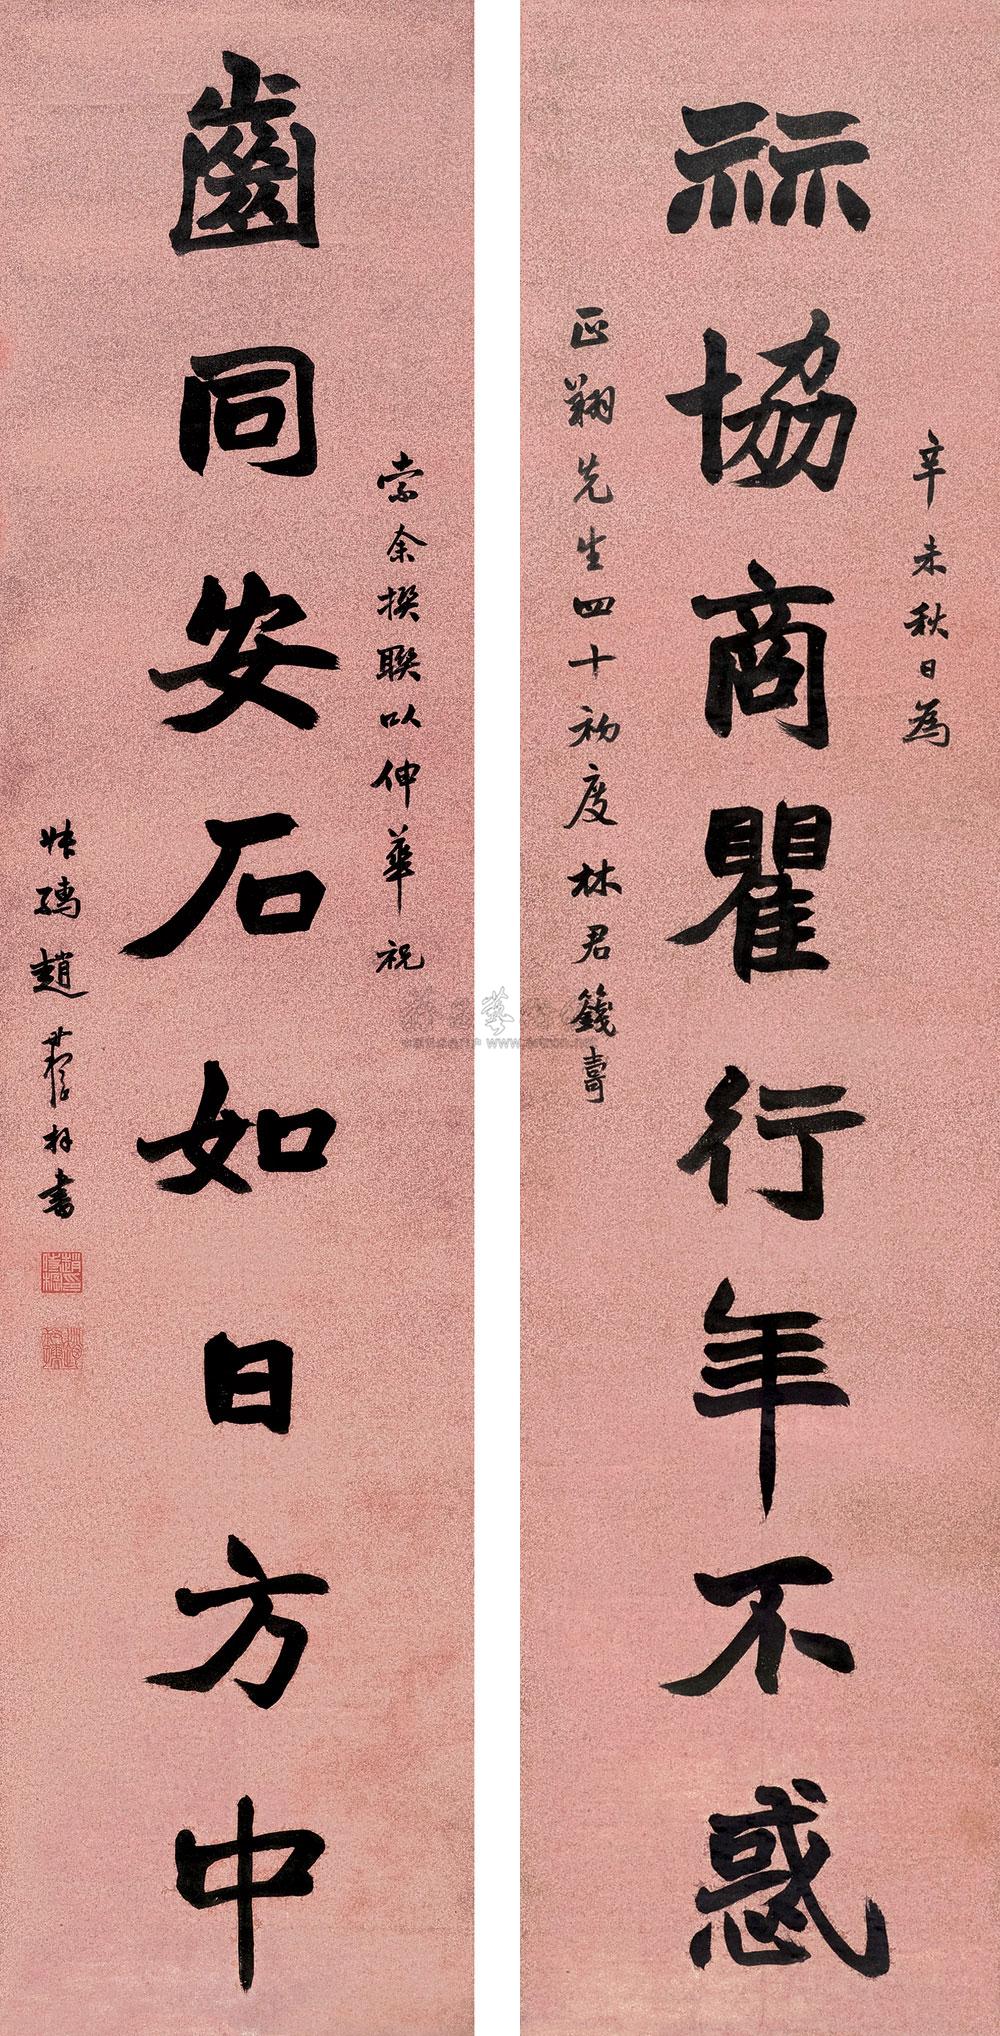 辛未秋日為
祘協商瞿行年不惑
正翔先生四十初度林君籛壽
索余撰聯以伸華祝
齒同安石如日方中
趙書
www.artron.net